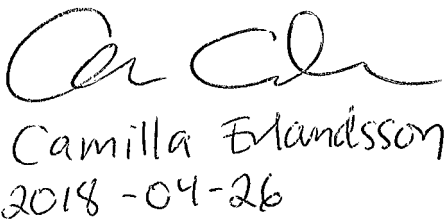 Camilla Erlandsson
2018-04-26